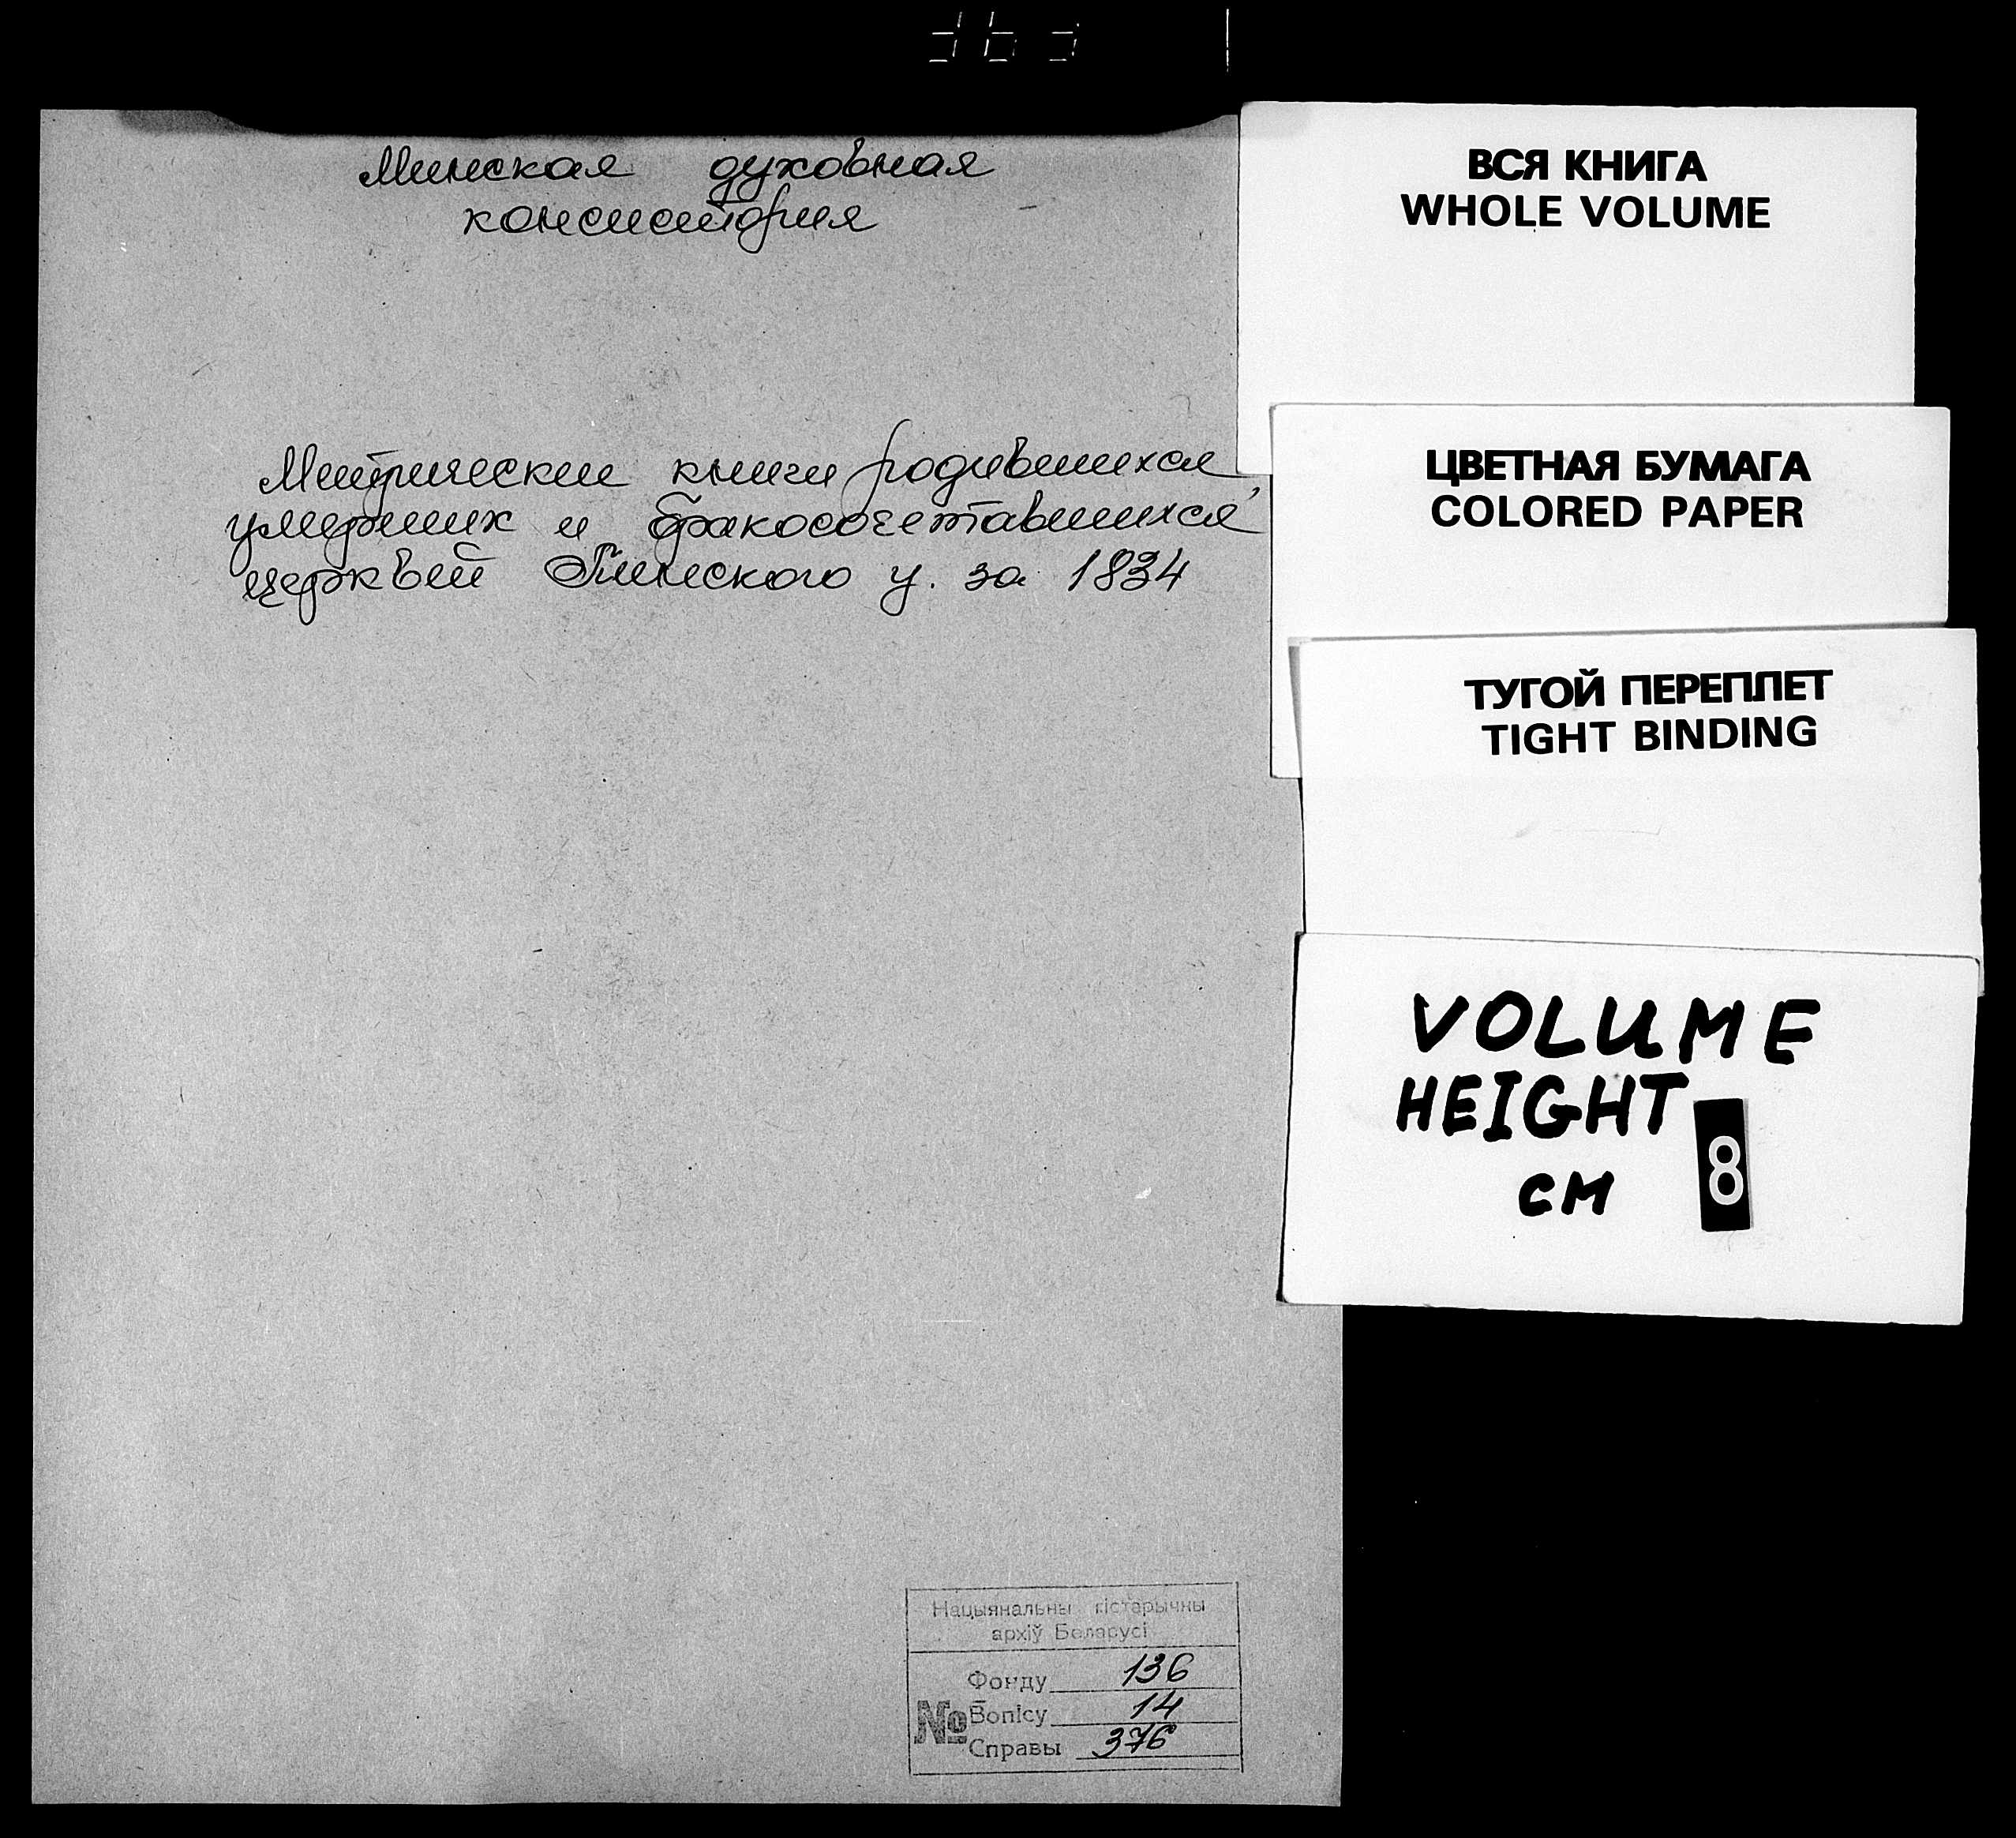 Минская духовная
консистория
Метрические книги родившихся,
умерших и бракосочетавшихся
церквей Пинского у. за 1834
ВСЯ КНИГА
WHOLE VOLUME
ЦВЕТНАЯ БУМАГА
COLORED PAPER
ТУГОЙ ПЕРЕПЛЕТ
TIGHT BINDING
VOLUME
HEIGHT
CM 8
Нацыянальны гістарычны
архіў Беларусі
Фонду 136
№ Вопісу 14
Справы 376